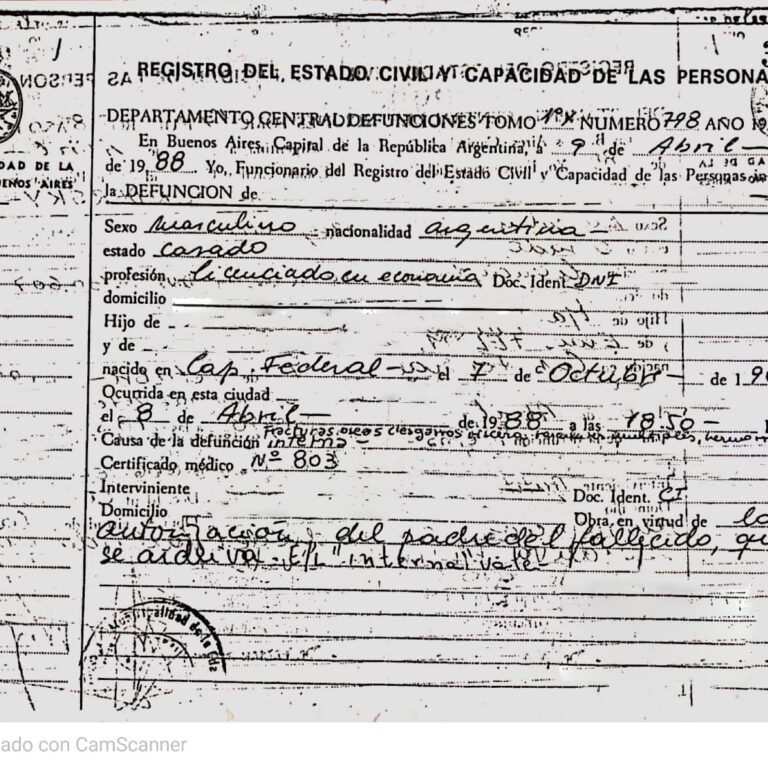 REGISTRO DEL ESTADO CIVIL Y CAPACIDAD DE LAS PERSONA
DEPARTAMENTO CENTRAL DEFUNCIONES TOMO NUMERO 798 AÑO 19
En Buenos Aires, Capital de la República Argentina, a 9 de Abril
de 1988 Yo, Funcionario del Registro del Estado Civil y Capacidad de las Personas
la DEFUNCION de
DAD DE LA
ENOS AIRES
Sexo masculino nacionalidad argentina
estado casado
profesión licenciado en economía Doc. Ident. DNI
domicilio
Hijo de
y de
nacido en Cap. Federal el 7 de Octubre de 19
Ocurrida en esta ciudad
el 8 de Abril de 1988 a las 18.50
Causa de la defunción fracturas oseas desgarros multiples,
interna
Certificado médico Nº 803
Interviniente Doc. Ident. CI
Domicilio Obra en virtud de la
autorización del padre del fallecido, qu
se archiva. E/L "interna" vale
ado con CamScanner